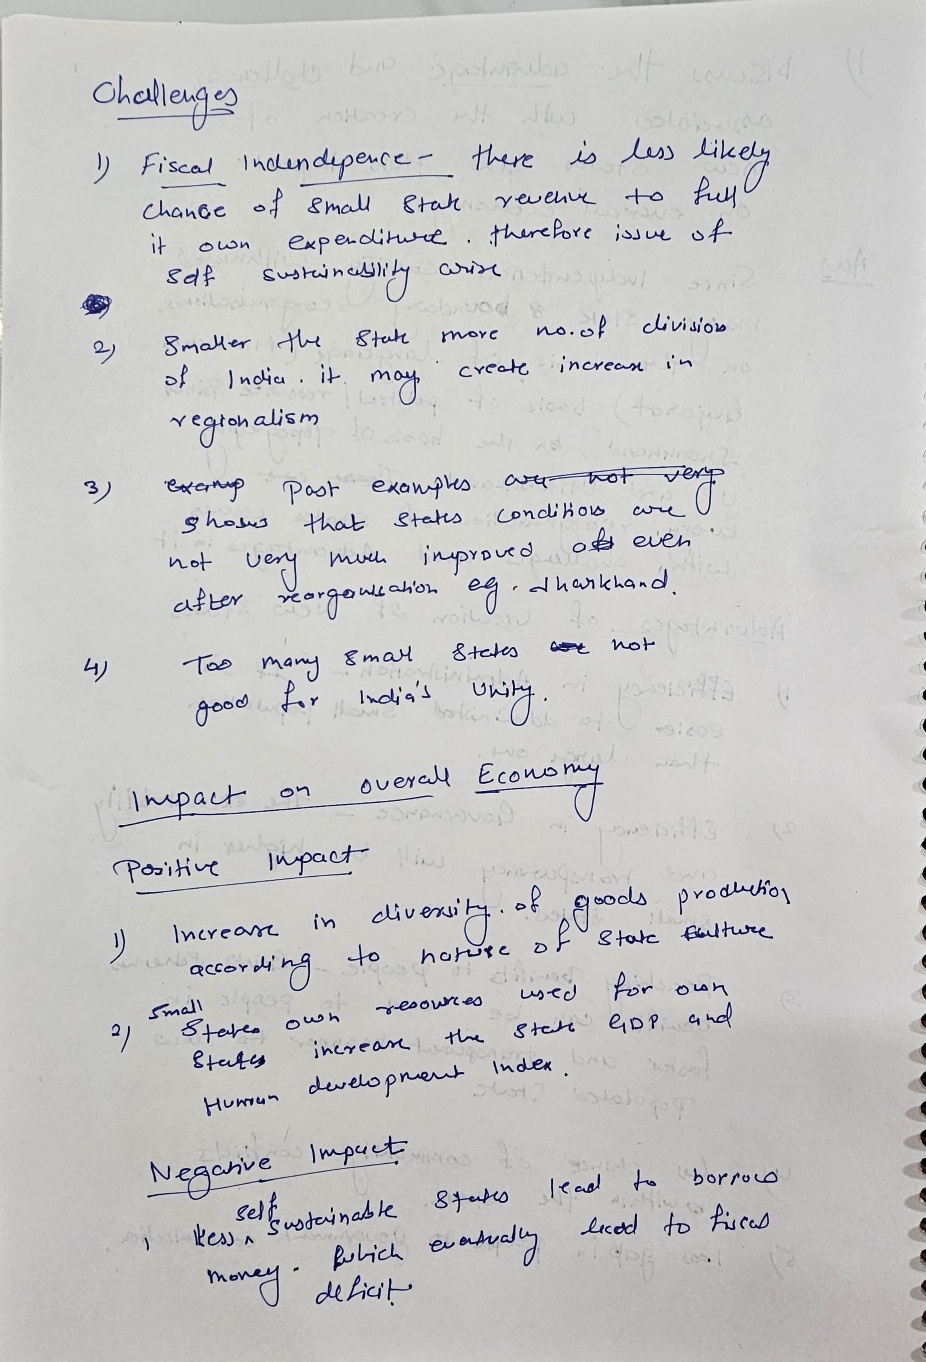 Challenges
1) Fiscal Indendepence - there is less likely
change of small state revenue to full
it own expenditure. therefore issue of
self sustainability arise
2) Smaller the state more no. of division
of India. it may create increase in
regionalism
3) examp Past examples are not very
shows that states conditions are
not very much improved even
after reorganisation eg. Jharkhand.
4) Too many small states are not
good for India's Unity.
Impact on overall Economy
Positive Impact
1) Increase in diversity. of goods production
according to nature of state culture
2) Small States own resources used for own
States increase the state GDP and
Human development Index.
Negative Impact
1 less self sustainable states lead to borrow
money. which eventually lead to fiscal
deficit